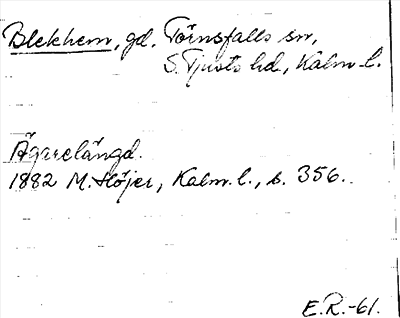 Blekhem, gd. Törnsfalls sn,
S. Tjusts hd, Kalm. l.
Ägarelängd.
1882 M. Höjer, Kalm. l., s. 356.
E.R.-61.